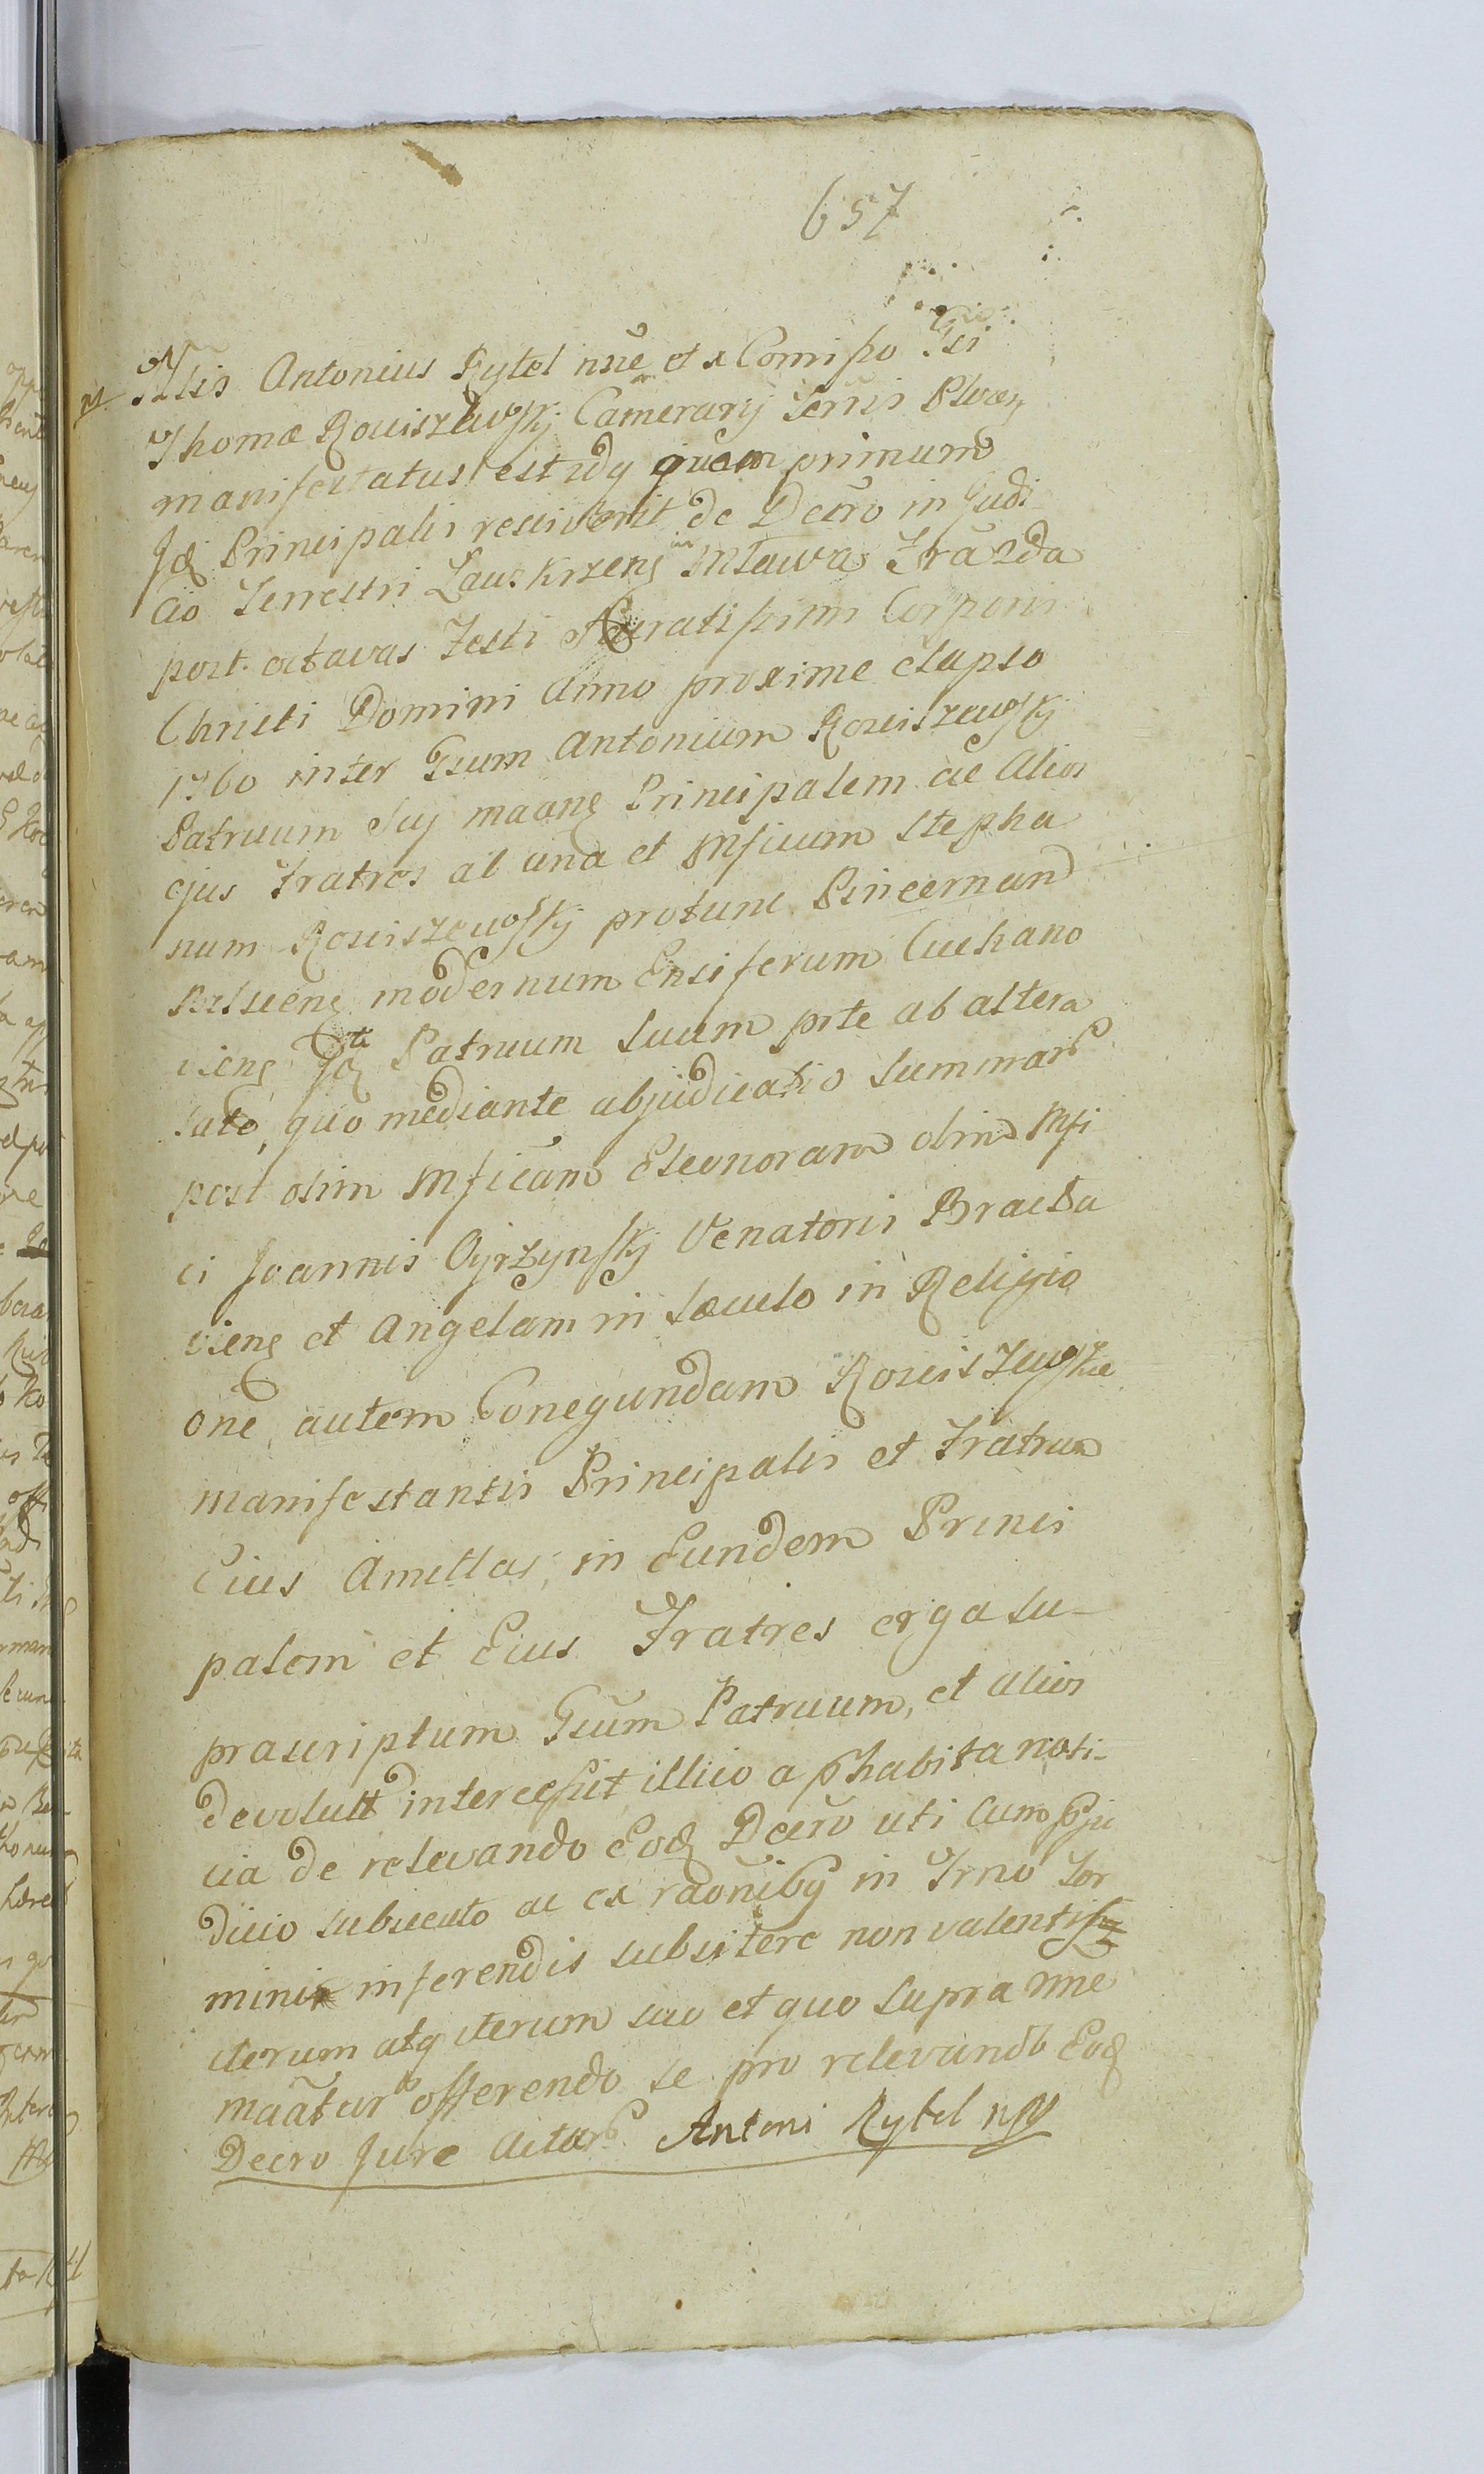 657
Nblis Antonius Rytel nne et ex Comisso Gsi
Thomæ Rouiszewskj Camerarij Terris Plocen
manifestatus est idq quam primum
Jd Principalis resciverit de Decro in Judi
cio Terrestri Zauskrzens in Mlawa Fra 2da
post octavas Festi Sacratissimi Corporis
Christi Domini Anno proxime elapso
1760 inter Gsum Antonium Rouiszewskj
Patruum Suj maans Principalem ac Alios
ejus Fratres ab una et Mficum Stepha
num Rouiszewskj protunc Pincernam
modernum Ensiferum Ciechano
viens Patruum Suum prte ab altera
lato, quo mediante abjudicatio Summar
post olim Mficam Eleonoram olim Mfi
ci Joannis Oyrzynskj Venatoris Bracla
viens et Angelam in Sæculo in Religio
one autem Conegundam Rouiszewskie
manifestantis Principalis et Fratrum
Eius Amittas, in Eundem Princi
palem et Eius Fratres erga su-
prascriptum Gsum Patruum, et alios
devolutt intercessit illico a habita noti-
cia de relevando Eod Decro uti cum
dicio subsecuto ac ex raonibq in Trno Ter
minis inferendis subsistere non valenti
iterum atq iterum suo et quo supra nne
maatur offerendo se pro relevando Eod
Decro Jure Actar Antoni Rytel mp